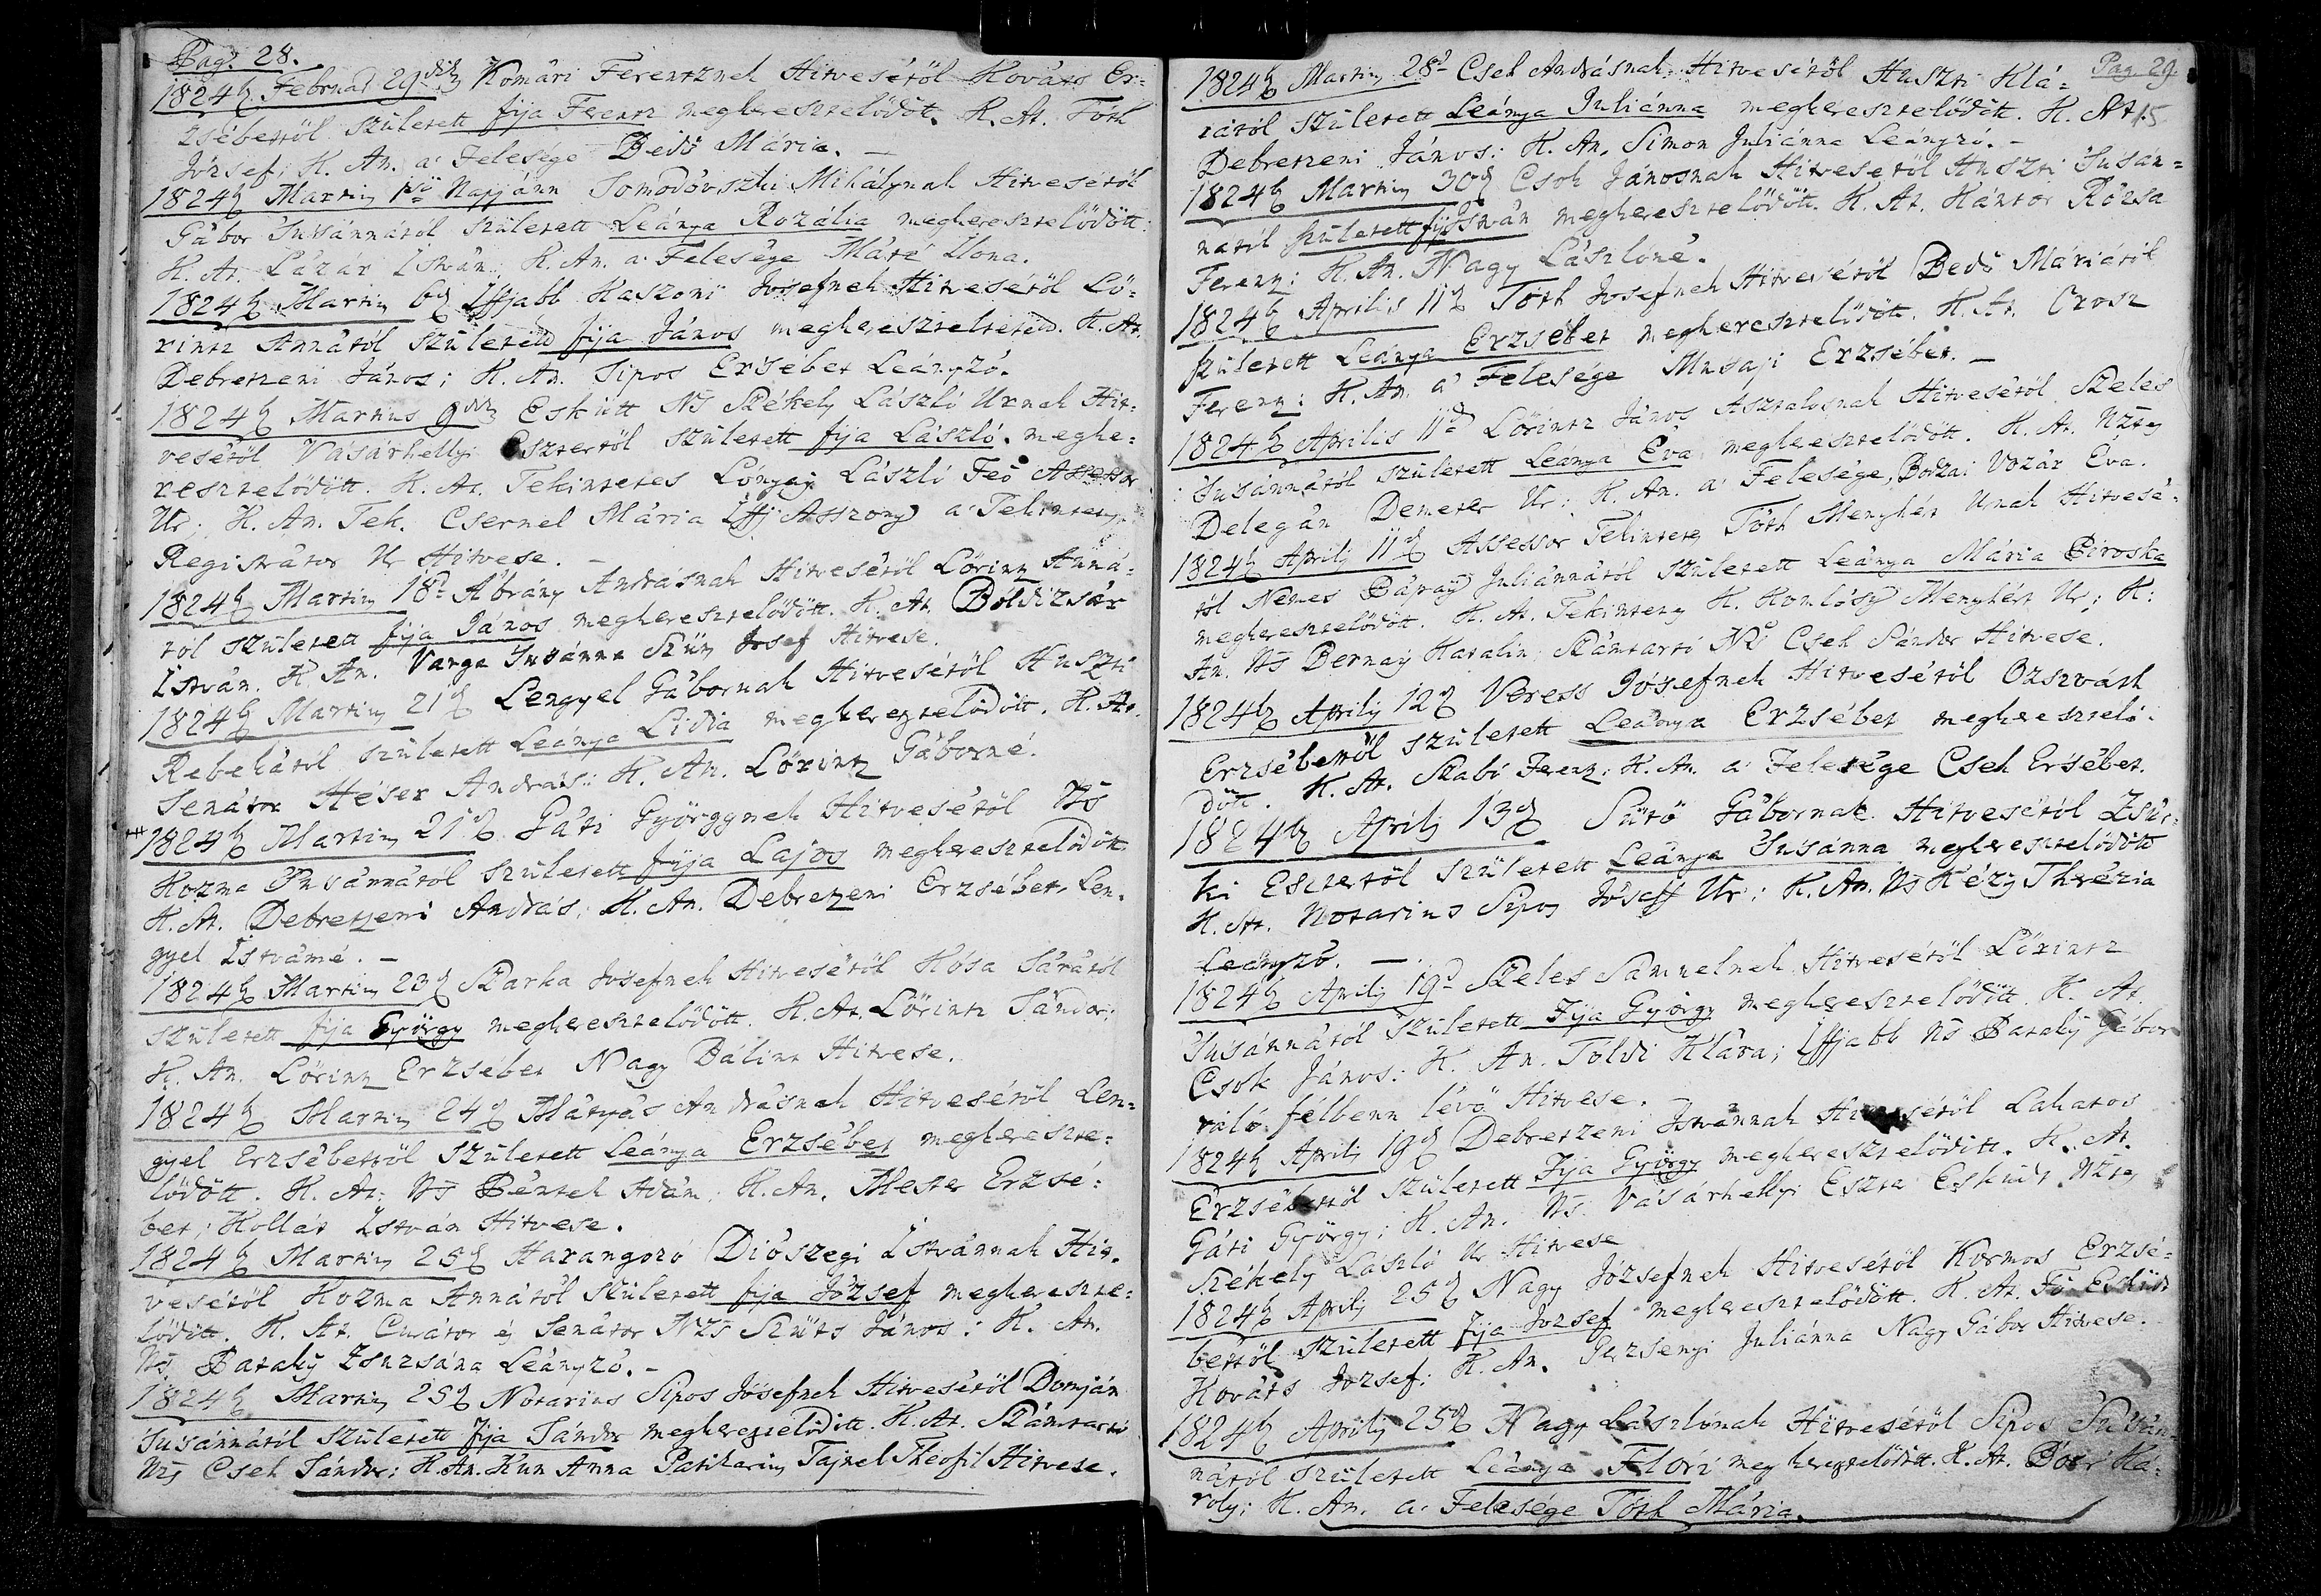 Pag. 28.
1824b. Februar 29dik Komári Ferentznek Hitvesétöl Kováts Er=
'zsébettöl született fija Ferentz megkereszteltödött. K. At. Tóth
Jó'sef; K. An. a' Felesége Bedö Mária. —
1824b Martius 1sö Napjánn Somodóvszki Mihálynak Hitvesétöl
Gábor 'Su'sánnától született Leánya Rozália megkeresztelödött:
K. At. Lázár István; K. An. a' Felesége Máté Ilona.
1824b Martius 6d Iffjabb Kaszoni Josefnek Hitvesétöl Lö=
rintz Annától született fija János megkereszteltetett. K. At.
Debretzeni János; K. An. Sipos Ersébet Leányzó.
1824b Martius 9dik Eskütt Ns Székely László Urnak Hit=
vesétöl Vásárhellyi Esztertöl született fija László megke=
resztelödött. K. At. Tekintetes Lónyay László Feö Assessor
Ur; K. An. Tek. Csernel Mária Iffj Asszony a' Tekintetes
Registrátor Ur Hitvese. —
1824b Martius 18d Ábrány Andrásnak Hitvesétöl Lörintz Anná=
tól született fija János megkeresztelödött. K. At. Boldizsár
István. K. An. Varga Su'sánna Szüts Josef Hitvese.
1824b Martius 21d Lengyel Gábornak Hitvesétöl Huszti
Rebekától született Leánya Lidia megkeresztelödött. K. At.
Senátor Héser András: K. An. Lörintz Gáborné.
1824b Martius 21d. Gáti Györgynek Hitvesétöl Ns
Kozma 'Su'sánnától született fija Lajos megkeresztelödött
K. At. Debretzeni András; K. An. Debretzeni Erzsébet, Len=
gyel Istvánné. —
1824b Martius 23d Szarka Josefnek Hitvesétöl Kósa Sárától
született fija György megkeresztelödött. K. At. Lörintz Sándor:
K. An. Lörintz Erzsébet Nagy Bálint Hitvese.
1824b Martius 24d Mátyás Andrásnak Hitvesétöl Len=
gyel Erzsébettöl született Leánya Erzsébet megkereszte=
lödött. K. At: Ns Béntek Adám; K. An. Mester Erzsé=
bet; Kollát István Hitvese.
1824b Martius 25d Harangozó Diószegi Istvánnak Hit=
vesétöl Kozma Annától született fija József megkereszte=
lödött. K. At. Curátor és Senátor Nzs Szüts János: K. An.
Ns Pataky Zsuzsána Leányzó. —
1824b Martius 25d Notarius Sipos Jósefnek Hitvesétöl Domján
'Susánnától született fija Sándor megkeresztelödött. K. At. Számtartó
Ns Cseh Sándor; K. An. Kun Anna Patikarius Tajnel Theofil Hitvese.
Pag. 29.
15
1824b Martius 28d Cseh Andrásnak Hitvesétöl Huszti Klá=
rától született Leánya Juliánna megkeresztelödött. K. At.
Debretzeni János: K. An. Simon Juliánna Leányzó. —
1824b Martius 30d Csok Jánosnak Hitvesetöl Huszti 'Susán=
natól született fija István megkeresztelödött. K. At. Kántor Rózsa
Ferentz; K. An. Nagy Lászlóné.
1824b Aprilis 11d Tóth Josefnek Hitvesétöl Bedö Máriától
született Leánya Erzsébet megkeresztelödött. K. At. Orosz
Ferentz: K. An. a' Felesége Musaji Erzsébet. —
1824b Aprilis 11d Lörintz János Asztalosnak Hitvesétöl Szeles
'Susánnától született Leánya Éva megkeresztelödött. K. At. Nztes
Delegán Demeter Ur: K. An. a' Felesége, Bodzai Vozár Éva.
1824b Aprilis 11d Assessor Tekintetes Tóth Menyhért Urnak Hitvesé=
töl Nemes Pápay Juliánnától született Leánya Mária Piroska
megkeresztelödött. K. At. Tekintetes K. Komlósy Menyhért Ur; K:
An. Ns Bernay Katalin Számtartó Ns Cseh Sándor Hitvese.
1824b Aprilis 12d Veress Jósefnek Hitvesétöl Ozsváth
Erzsébettöl született Leánya Erzsébet megkeresztelö=
dött. K. At. Szabó Ferentz; K. An. a' Felesége Cseh Ersébet.
1824b Aprilis 13d Sütö Gábornak Hitvesétöl Zsur=
ki Esztertöl született Leánya 'Susánna megkeresztelödött
K. At. Notarius Sipos Jóseff Ur: K. An. Ns Kézy Thrézia
Leányzó. —
1824b Aprilis 19d Szeles Samuelnek Hitvesétöl Lörintz
'Susánnától született Fija György megkeresztelödött. K. At.
Csok János: K. An. Toldi Klára; Iffjabb Ns Pataky Gábor
váló félbenn lévö Hitvese.
1824b Aprilis 19d Debretzeni Istvánnak Hitvesétöl Lakatos
Erzsébettöl született Fija György megkeresztelödött. K. At.
Gáti György; K. An. Ns. Vásárhellyi Eszter Esküdt Nztes
Székely László Ur Hitvese
1824b Aprilis 25d Nagy Józsefnek Hitvesétöl Kormos Erzsé=
bettöl született fija Jozsef megkeresztelödött. K. At. Fö Esküdt
Kováts Jozsef: K. An. Perzsenyi Juliánna Nagy Gábor Hitvese.
1824b Aprilis 25d Nagy Lászlónak Hitvesétöl Sipos 'Susán=
nától született Leánya Flóri megkeresztelödött. K. At. Boér Ká=
roly; K. An. a' Felesége Tóth Mária.